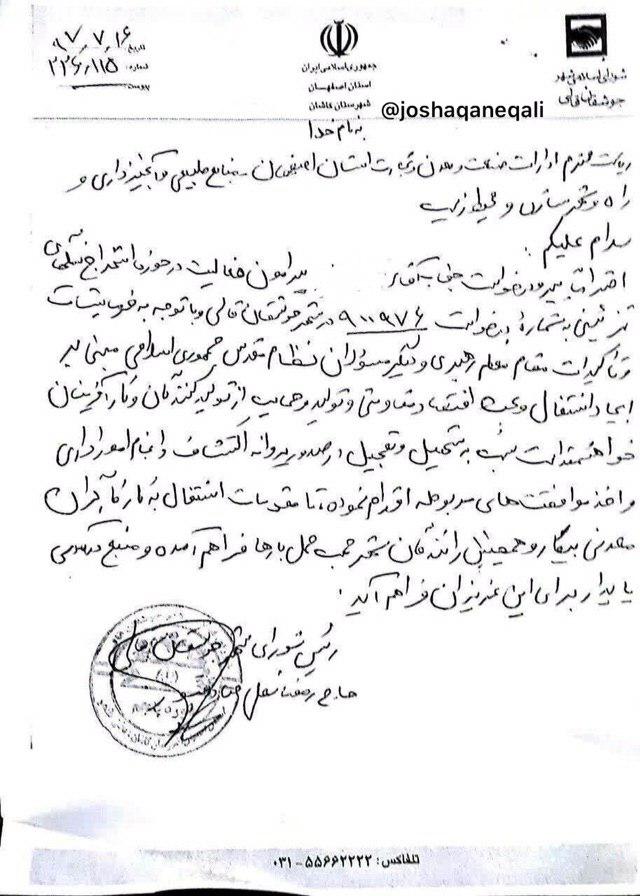 شورای اسلامی شهر
جوشقان قالی
جمهوری اسلامی ایران
استان اصفهان
شهرستان کاشان
تاریخ: ۹۷,۷,۱۶
شماره: ۲۲۶,۱۱۵
پیوست:
@joshaqaneqali
به نام خدا
ریاست محترم ادارات صنعت و معدن و تجارت استان اصفهان - منابع طبیعی و آبخیزداری و
راه و شهرسازی و محیط زیست
سلام علیکم:
احتراماً پیرو درخواست جناب آقای پیرامون فعالیت در حوزه استخراج سنگهای
تزئینی به شماره درخواست ۹۰۰۹۷۶ در شهر جوشقان قالی و با توجه به فرمایشات
و تاکیدات مقام معظم رهبری و دیگر مسئولان نظام مقدس جمهوری اسلامی مبنی بر
ایجاد اشتغال و بحث اقتصاد مقاومتی و تولید و حمایت از تولیدکنندگان و کارآفرینان
خواهشمند است نسبت به تسهیل و تعجیل در صدور پروانه اکتشاف و انجام امور اداری
و اخذ موافقت های مربوطه اقدام نموده تا مقدمات اشتغال به کار کارگران
معدنی بیکار و همچنین رانندگان شهر جهت حمل بارها فراهم آمده و منبع درآمدی
پایدار برای این عزیزان فراهم آید.
رئیس شورای شهر جوشقان قالی
حاج رمضانعلی
تلفاکس: ۵۵۶۶۲۲۲۲-۰۳۱